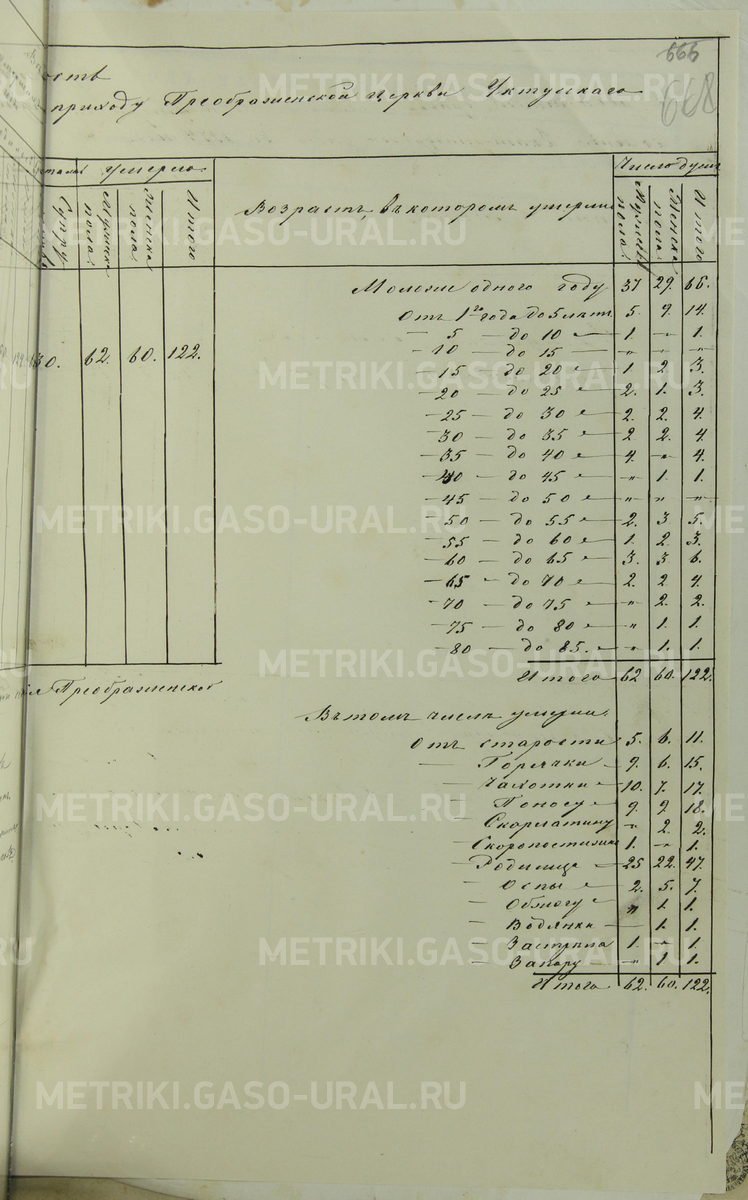 666
668
ость
приходу Преображенской церкви Уктускаго
умерло.
Число душъ
Мужеска пола.
Женска пола.
Итого
Возрастъ, въ котором умерли
Мужеска пола.
Женска пола.
Итого
Моложе одного году 37 29. 66.
Отъ 1го года до 5 летъ 5. 9. 14.
— 5 — до 10 — 1. „ 1.
— 10 — до 15 — „ „ „
— 15 — до 20 — 1 2 3.
— 20 — до 25 — 2. 1. 3.
— 25 — до 30 — 2. 2. 4.
— 30 — до 35 — 2 2. 4
— 35 — до 40 — 4. „ 4.
— 40 — до 45 — „ 1. 1.
— 45 — до 50 — „ „ „
— 50 — до 55 — 2. 3 5.
— 55 — до 60 — 1. 2. 3.
— 60 — до 65 — 3. 3 6.
— 65 — до 70 — 2. 2 4.
— 70 — до 75 — „ 2. 2.
— 75 — до 80 — „ 1. 1.
— 80 — до 85. — „ 1. 1.
Итого 62 60. 122.
30. 62. 60. 122.
Преображенской
Въ томъ числе умерли.
Отъ старости 5. 6. 11.
— Горячки — 9. 6. 15.
— Чахотки — 10. 7. 17.
— Поносу — 9. 9. 18.
— Скарлатину „ 2. 2.
— Скоропостижно 1. „ 1.
— Родимце — 25 22. 47.
— Оспы — 2. 5. 7.
— „ 1. 1.
— Водянки — „ 1. 1.
— Застрела 1. „ 1.
— Запору — „ 1. 1.
Итого. 62. 60. 122.
METRIKI.GASO-URAL.RU